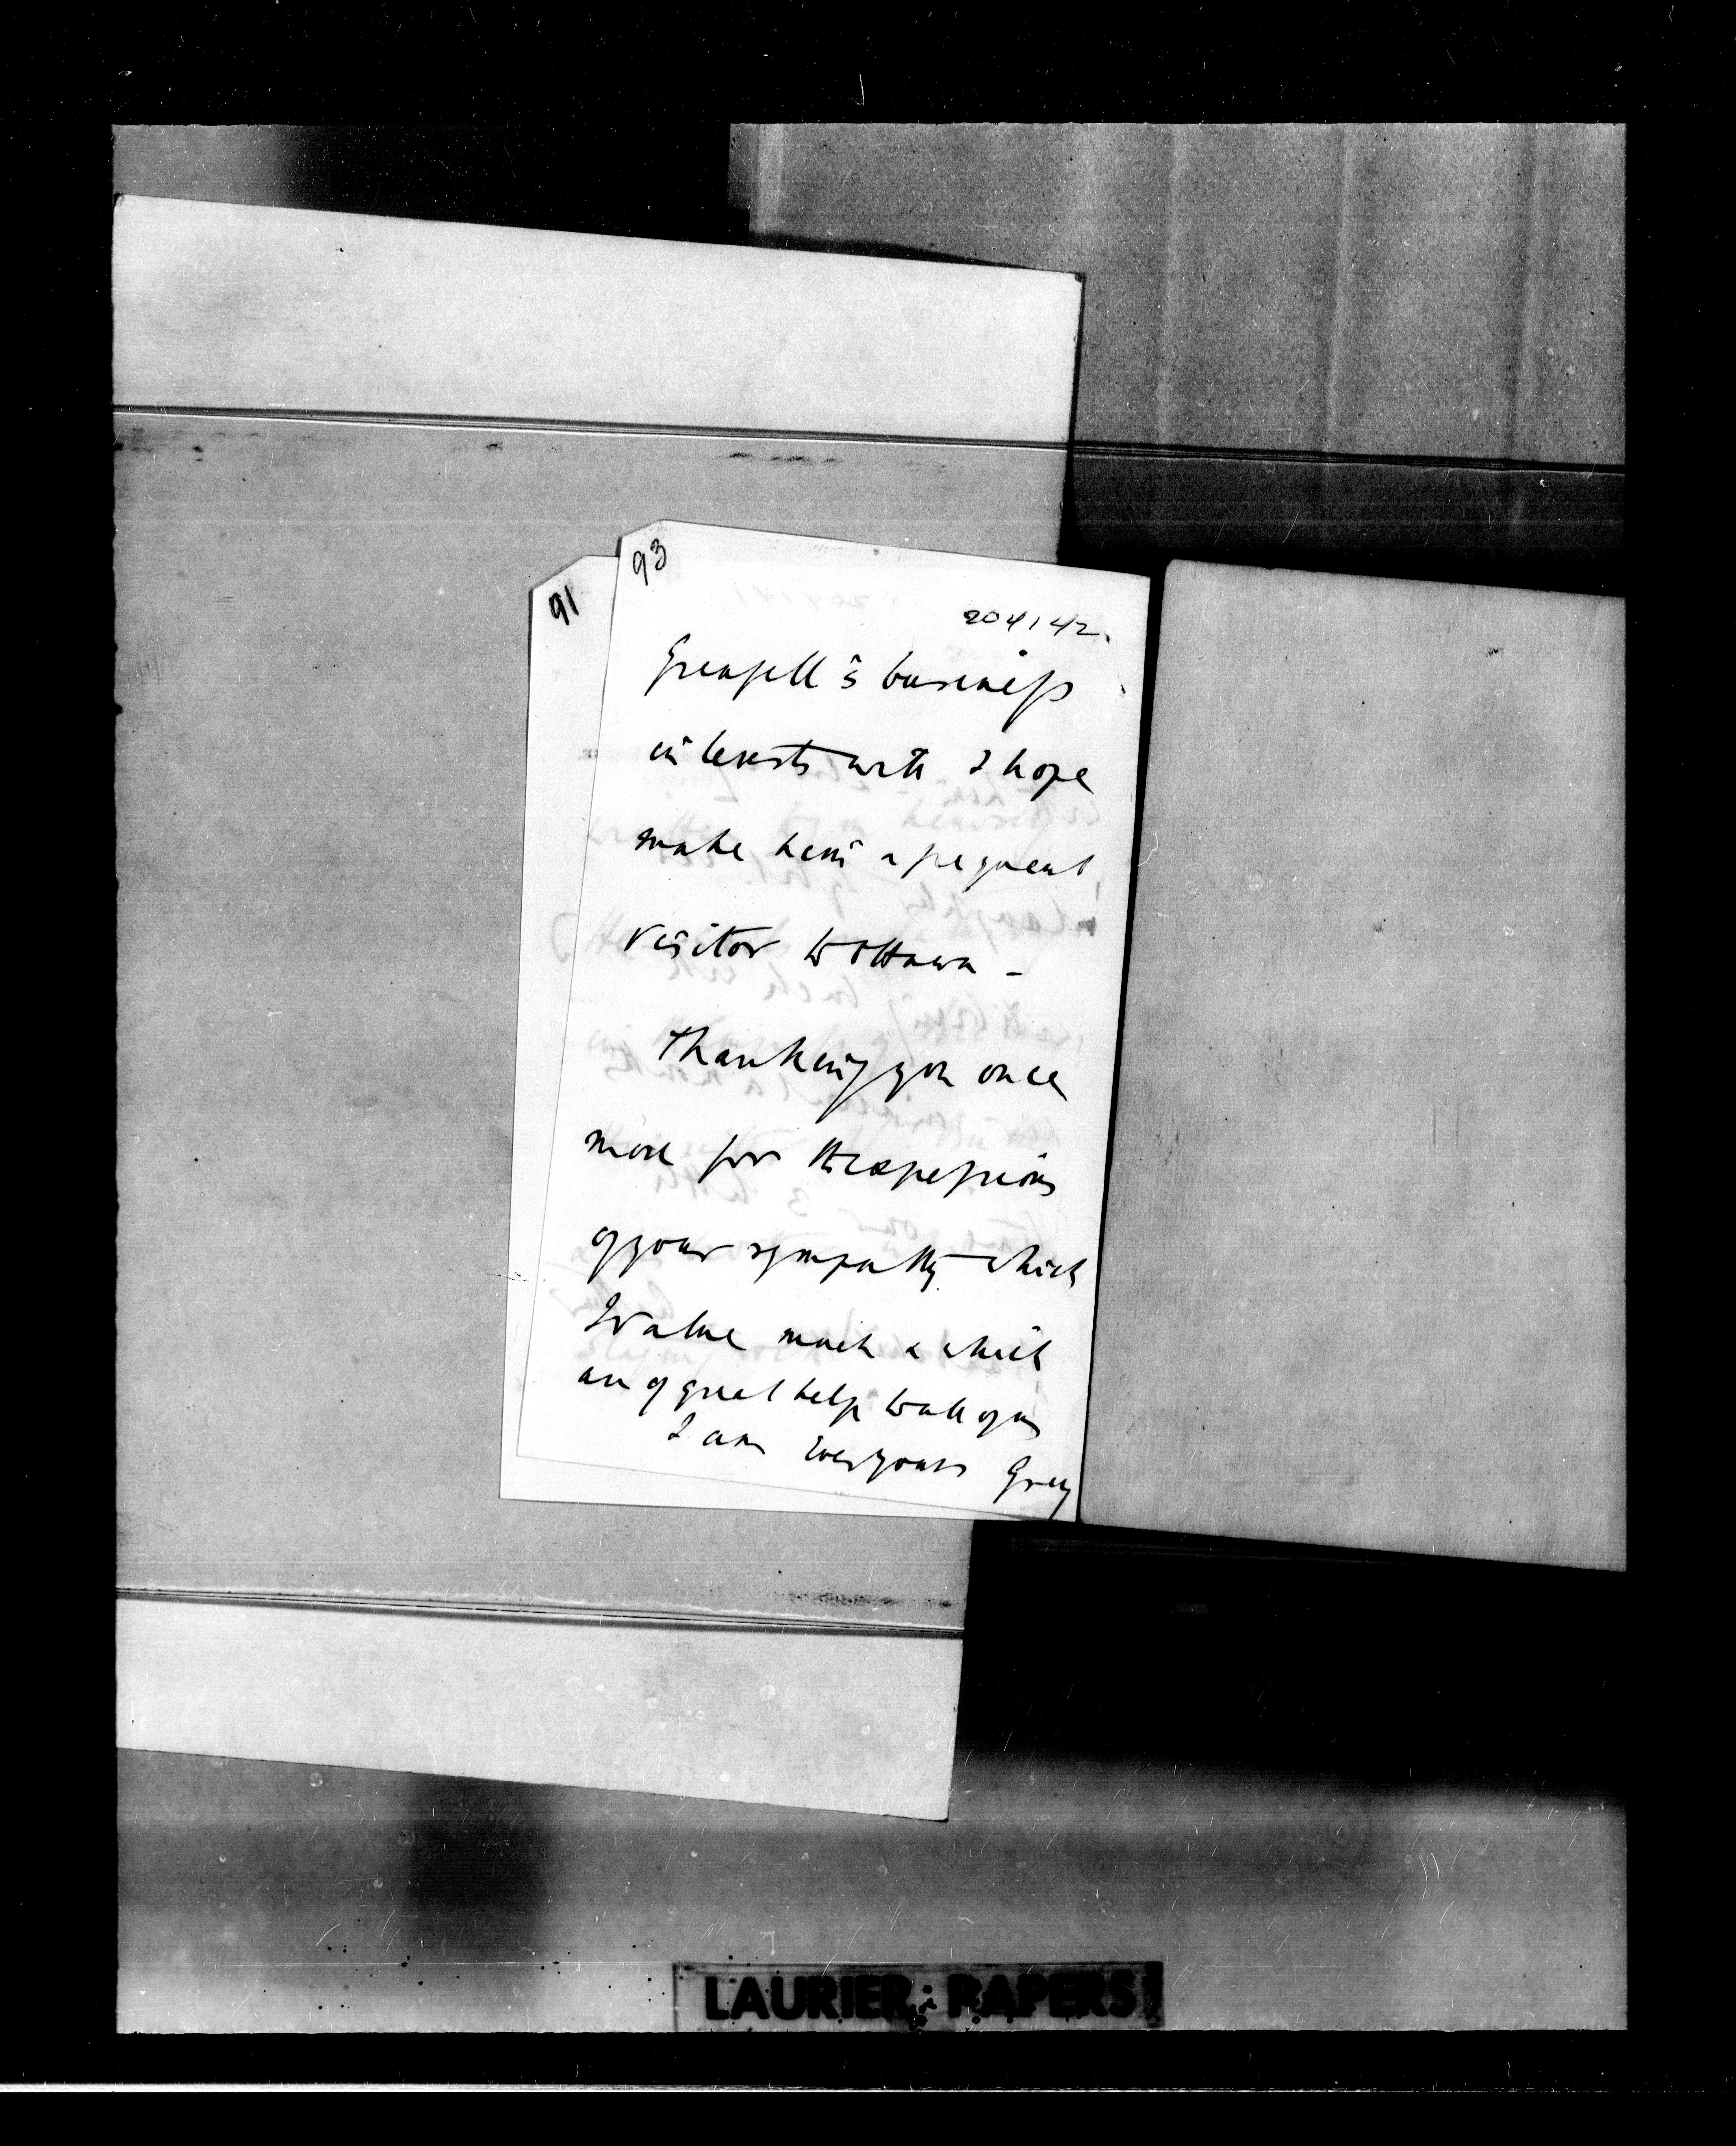 93
91
204142.
Grenfell's business
interests will I hope
make him a frequent
visitor to Ottawa -
Thanking you once
more for the expressions
of your sympathy which
I value much & which
are of great help to all of us
I am Ever yours Grey
LAURIER PAPERS